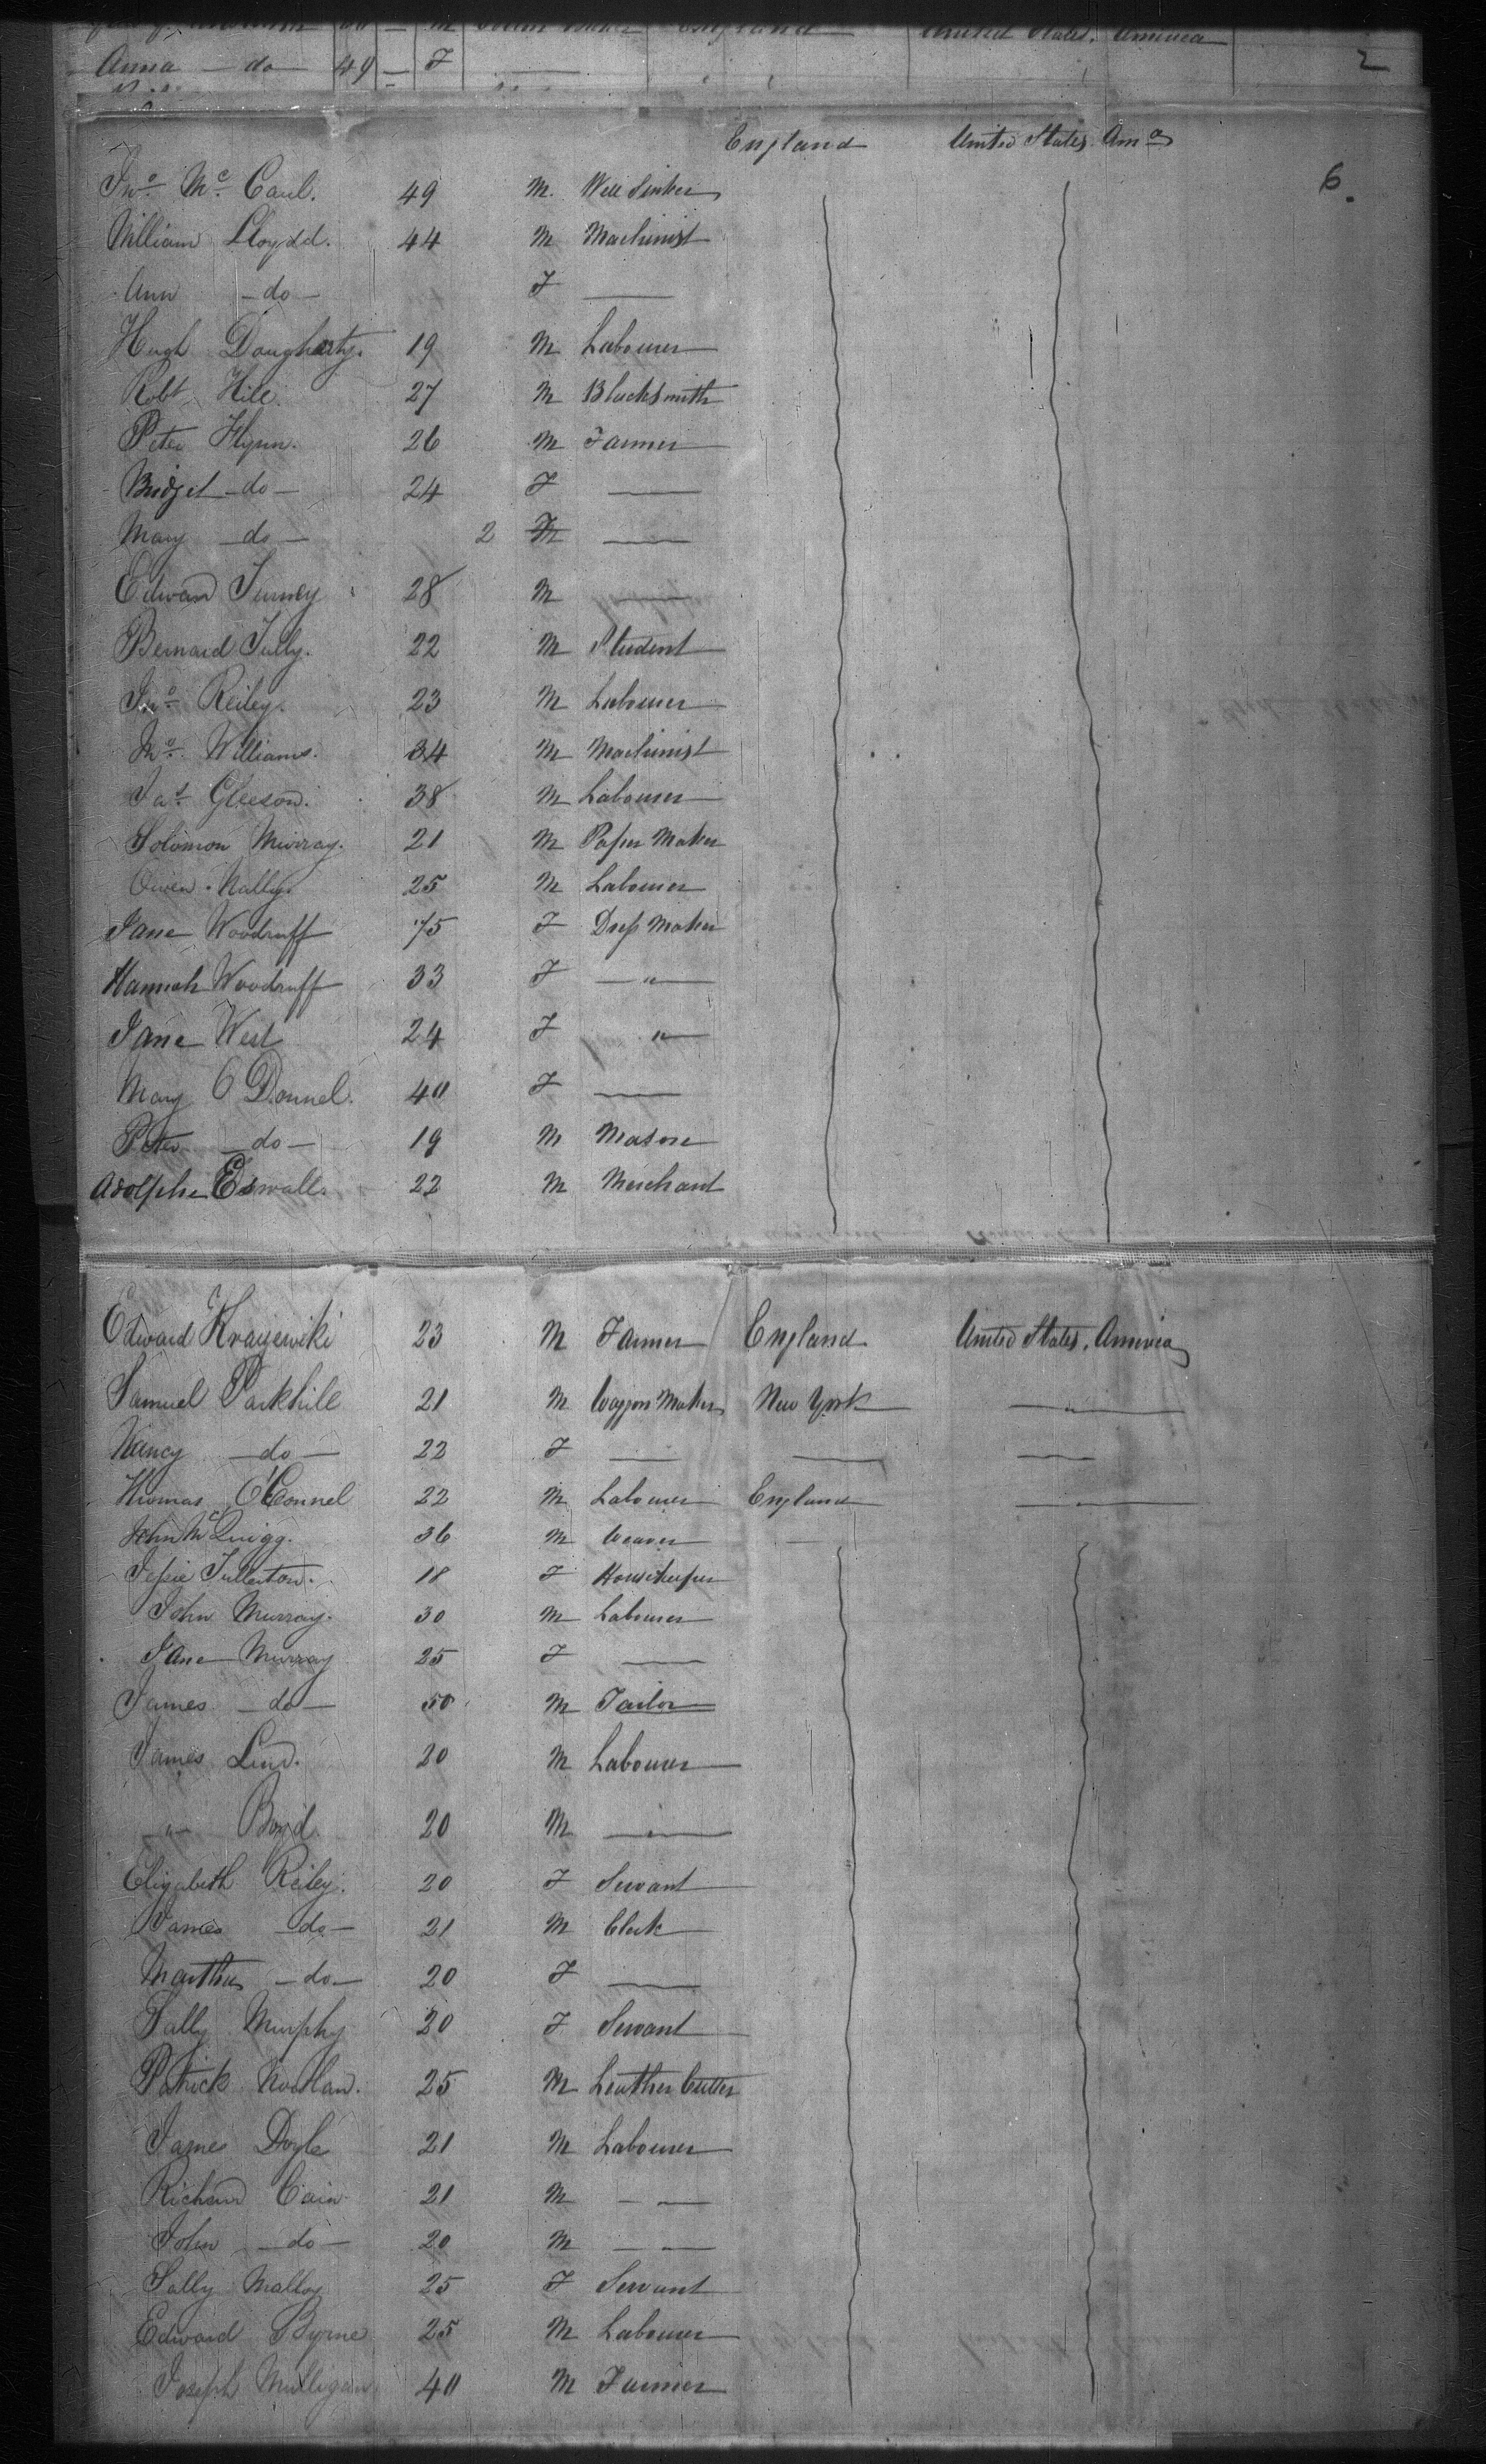 Anna — do — 49 — F —— 2
England United States Ama
Jno. Mc. Caul. 49 M. Well Sinker 6.
William Lloydd. 44 M Machinist
Ann — do — F ——
Hugh Dougharty. 19 M Labourer
Robt. Hill. 27 M Blacksmith
Peter Flynn. 26 M Farmer
Bridget — do — 24 F ——
Mary — do — 2 F ——
Edward 28 M ——
Bernard Tully. 22 M Student
Jno. Reiley. 23 M Labourer
Jno. Williams. 34 M Machinist
Jas. Gleeson. 38 M Labourer
Solomon Murray. 21 M Paper Maker
Owen Nally. 25 M Labourer
Jane Woodruff 75 F Dress Maker
Hannah Woodruff 33 F — " —
Jane West 24 F " —
Mary O Donnel. 40 F ——
Peter — do — 19 M Mason
Adolphe 22 M Merchant
Edward Krayewiki 23 M Farmer England United States, America
Samuel Parkhill 21 M Waggon Maker New York — " —
Nancy — do — 22 F —— —— ——
Thomas O'Connel 22 M Labourer England ——
John McQuigg. 36 M Weaver —
Jessie Fullerton. 18 F Housekeeper
John Murray. 30 M Labourer
Jane Murray 25 F ——
James — do — 50 M Tailor
James Lind. 20 M Labourer
— " — Boyd 20 M — " —
Elizabeth Reiley. 20 F Servant
James — do — 21 M Clerk
Martha — do — 20 F ——
Sally Murphy 20 F Servant
Patrick Nowlan. 25 M Leather Cutter
James Doyle 21 M Labourer
Richard Cain 21 M — —
John — do — 20 M — —
Sally Malloy 25 F Servant
Edward Byrne 25 M Labourer
Joseph Mulligan 40 M Farmer